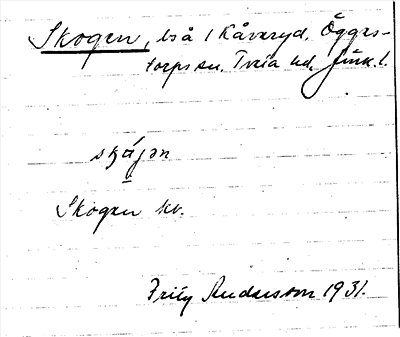 Skogen, bså i Kåveryd. Ögges-
torps sn. Tveta hd. Jönk. l.
skógen
Skogen kv.
Fritz Andersson 1931.